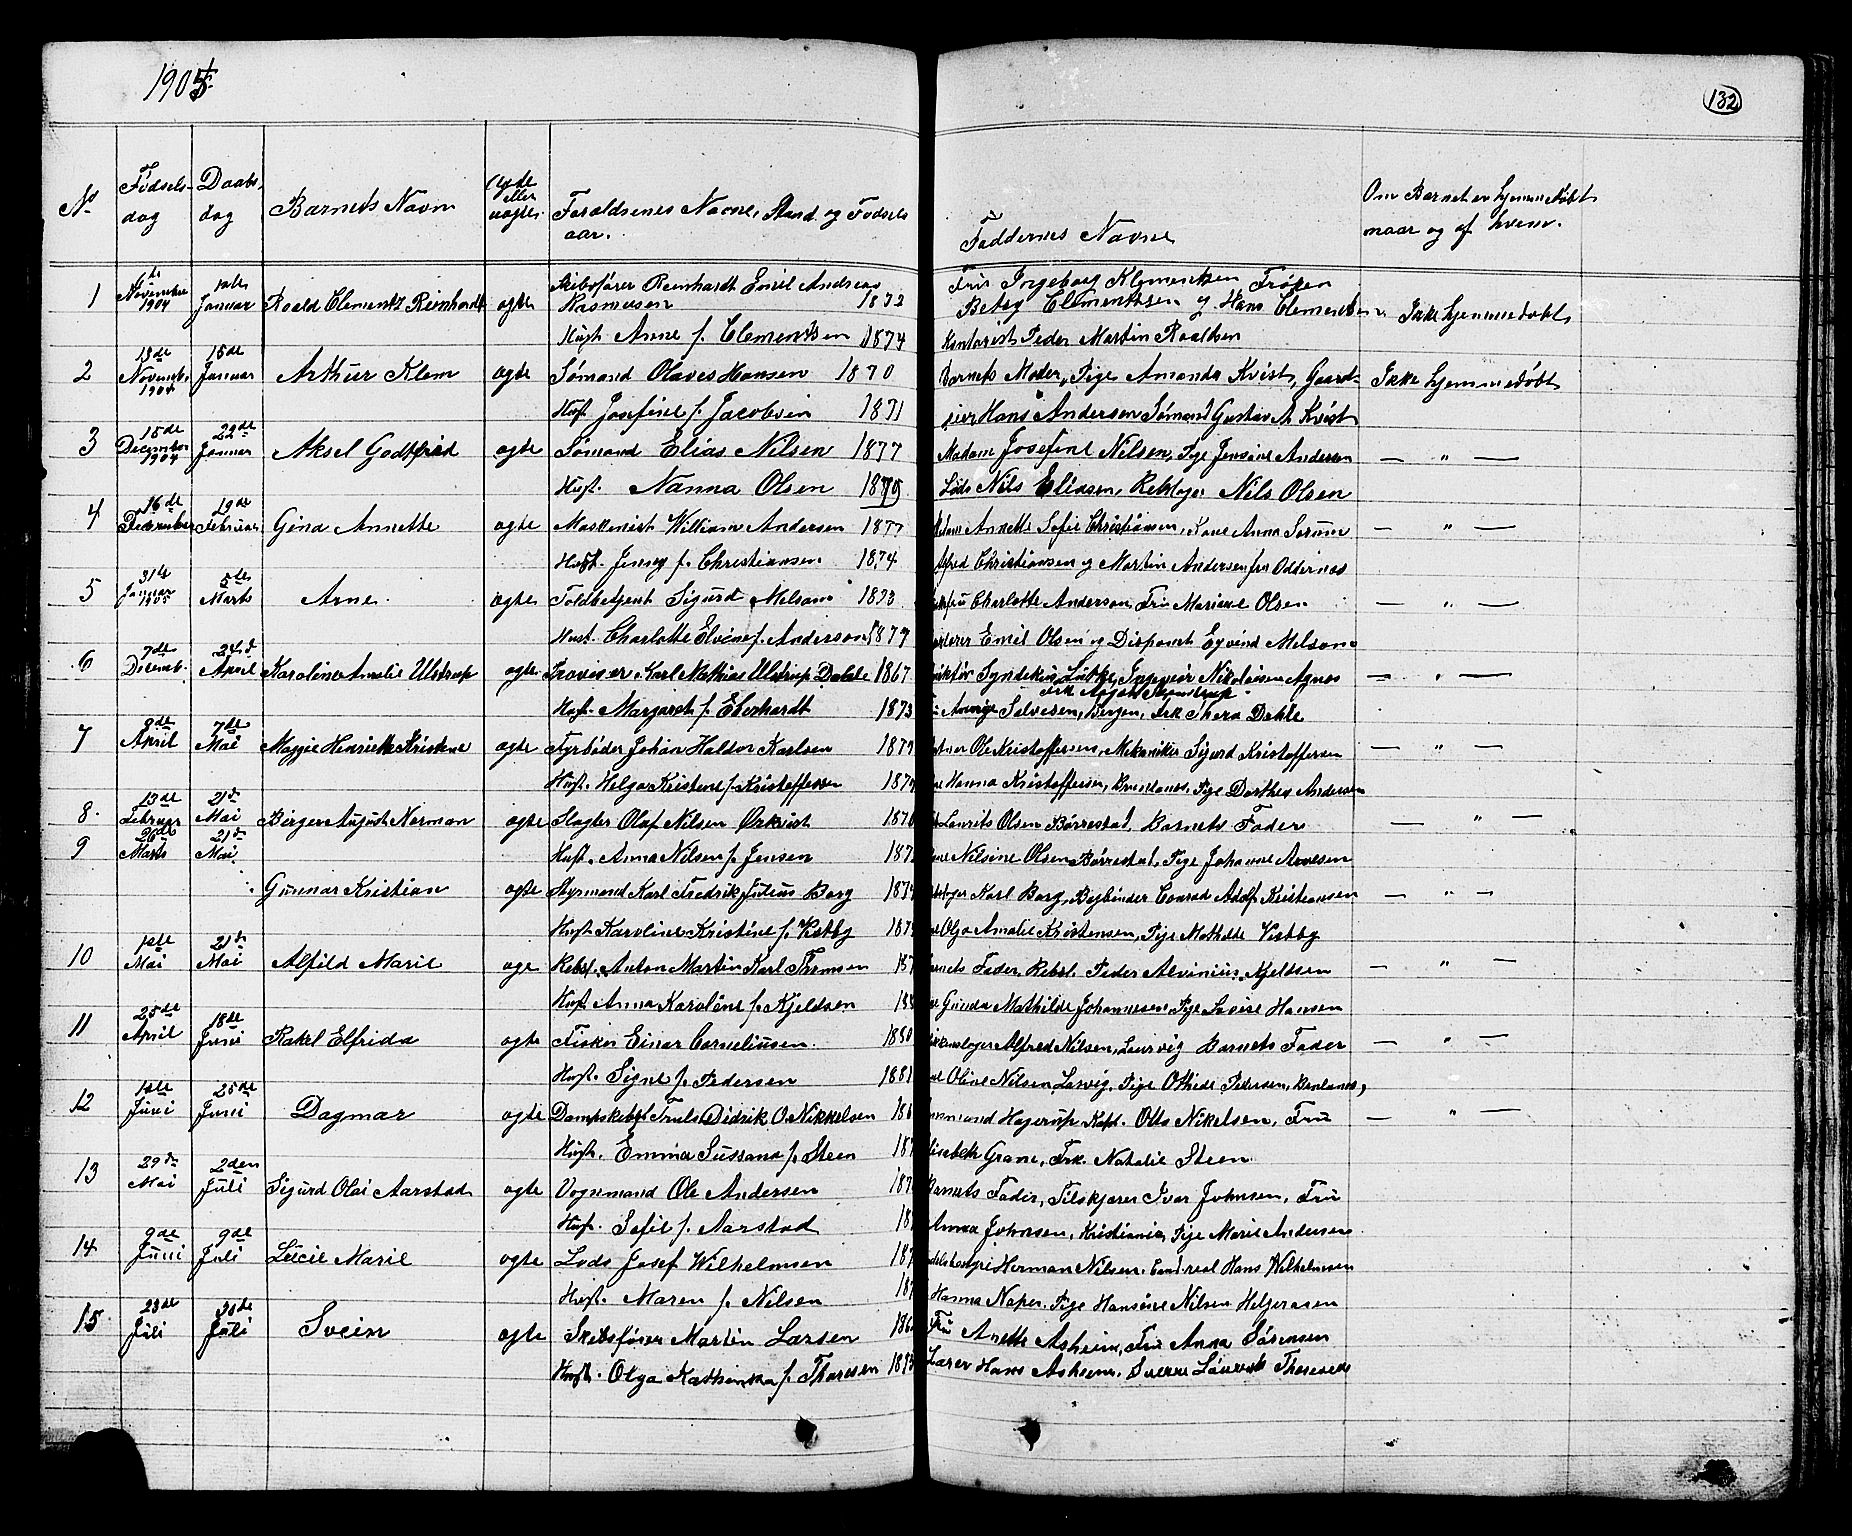 1905
132
No
Fødsels-
dag
Daabs-
dag
Barnets Navn
Ægte
eller
uægte.
Foraldrenes Navne, Stand og Fødsels
aar.
Faddernes Navne
Om Barnet er hjemmedøbt
naar og af hvem.
1 6te November 1904 1ste Januar Roald Clementz Reinhardt ægte Skibsfører Reinhardt Emil Andreas
Rasmusen 1872
Hust. Anne f. Clementsen 1874
Fru Ingeborg Klementsen Frøken
Betsy Clementsen og Hans Clementsen
Kontorist Peder Martin Roaldsen
Ikke hjemmedøbt
2 13de Novemb. 1904 15de Januar Arthur Klem ægte Sømand Olaves Hansen 1870
Hust. Josefine f. Jacobsen 1871
Barnets Moder, Pige Amanda Kvist, Gaard-
eier Hans Andersen Sømand Gustav A. Kvist
Ikke hjemmedøbt
3 18de December 1904 22de Januar Aksel Godtfred ægte Sømand Elias Nilsen 1877
Hust. Nanna Olsen 1879
Madam Josefine Nilsen, Pige Jensine Andersen
Lods Nils Eliasen, Rebslager Nils Olsen
— " —
4 16de 19de Februar Gina Annette ægte Maskinist William Andersen 1877
Hust. Jenny f. Christiansen 1874
Annette Sofie Christiansen, Kone Anna Sørum
Alfred Christiansen og Martin Andersen fra Oddernes
— " —
5 31te Januar 1905 5te Marts Arne ægte Toldbetjent Sigurd Melsom 1873
Hust. Charlotte Elvine f. Anderson 1879
Charlotte Anderson, Fru Mariane Olsen
Emil Olsen og Disponent Eyvind Melsom
— " —
6 7de Decemb. 24de April Karoline Amalie Ulstrup ægte Provisor Karl Mathias Ulstrup Dahle 1867
Hust. Margaret f. Eberhardt 1873
Syndikus Lütke, Ingeniør Nikolaisen Agnes
Salvesen, Bergen, Frk Thora Dahle
— " —
7 9de April 7de Mai Maggie Henriette Kristine ægte Fyrbøder Johan Haldor Karlsen 187
Hust. Helga Kristine f. Kristoffersen 187
Ole Kristoffersen, Mekaniker Sigurd Kristoffersen
Hanna Kristoffersen, Brunlanes, Pige Dorthea Andersen
— " —
8. 13de Februar 21de Mai Birger August Norman ægte Slagter Olaf Nilsen Ørkvist 187
Hust. Anna Nilsen f. Jensen 187
Laurits Olsen Børrestad, Barnets Fader
Nilsine Olsen Børrestad, Pige Johanne Arnesen
— " —
9 26de Marts 21de Mai Gunnar Kristian ægte Styrmand Karl Fredrik Julius Borg 187
Hust. Karoline Kristine f. Vestby 187
Karl Borg, Bogbinder Conrad Adolf Kristiansen
Olga Amalie Kristensen, Pige Mathilde Vestby
— " —
10 1ste Mai 21de Mai Alfild Marie ægte Rebsl. Anton Martin Karl Thomsen 187
Hust. Anna Karoline f. Kjeldsen 188
Barnets Fader, Rebsl. Peder Alvinius Kjeldsen
Gunda Mathilde Johannesen Pige Lovise Hansen
— " —
11 25de April 18de Juni Rakel Elfrida ægte Fisker Einar Corneliusen 1880
Hust. Signe f. Pedersen 1881
Alfred Nilsen, Laurvig Barnets Fader
Oline Nilsen Larvig, Pige Othide Pedersen, Brunlanes,
— " —
12 1ste Juni 25de Juni Dagmar ægte Dampskibsf. Truls Didrik O. Nikkelsen 186
Hust. Emma Sussana f. Steen 187
Hagerup Kapt. Otto Nikelsen, Fru
Elisabeth Grane, Frk. Natalie Steen
— " —
13 29de Mai 2den Juli Sigurd Olai Aarstad ægte Vognmand Ole Andersen 187
Hust. Sofie f. Aarstad 18
Barnets Fader, Tilskjærer Ivar Johnsen, Fru
Anna Johnsen, Kristiania, Pige Marie Andersen
14 9de Juni 9de Juli Lucie Marie ægte Lods Josef Wilhelmsen 187
Hust. Maren f. Nilsen 187
Herman Nilsen, Hans Wilhelmsen
Hanna Naper. Pige Hansine Nilsen Helgeroen
15 23de Juli 30de Juli Svein ægte Skibsfører Martin Larsen 186
Hust. Olga Kathinka f. Thoresen 1873
Fru Anette Asheim, Fru Anna Sørensen
Lærer Hans Asheim, Sverre